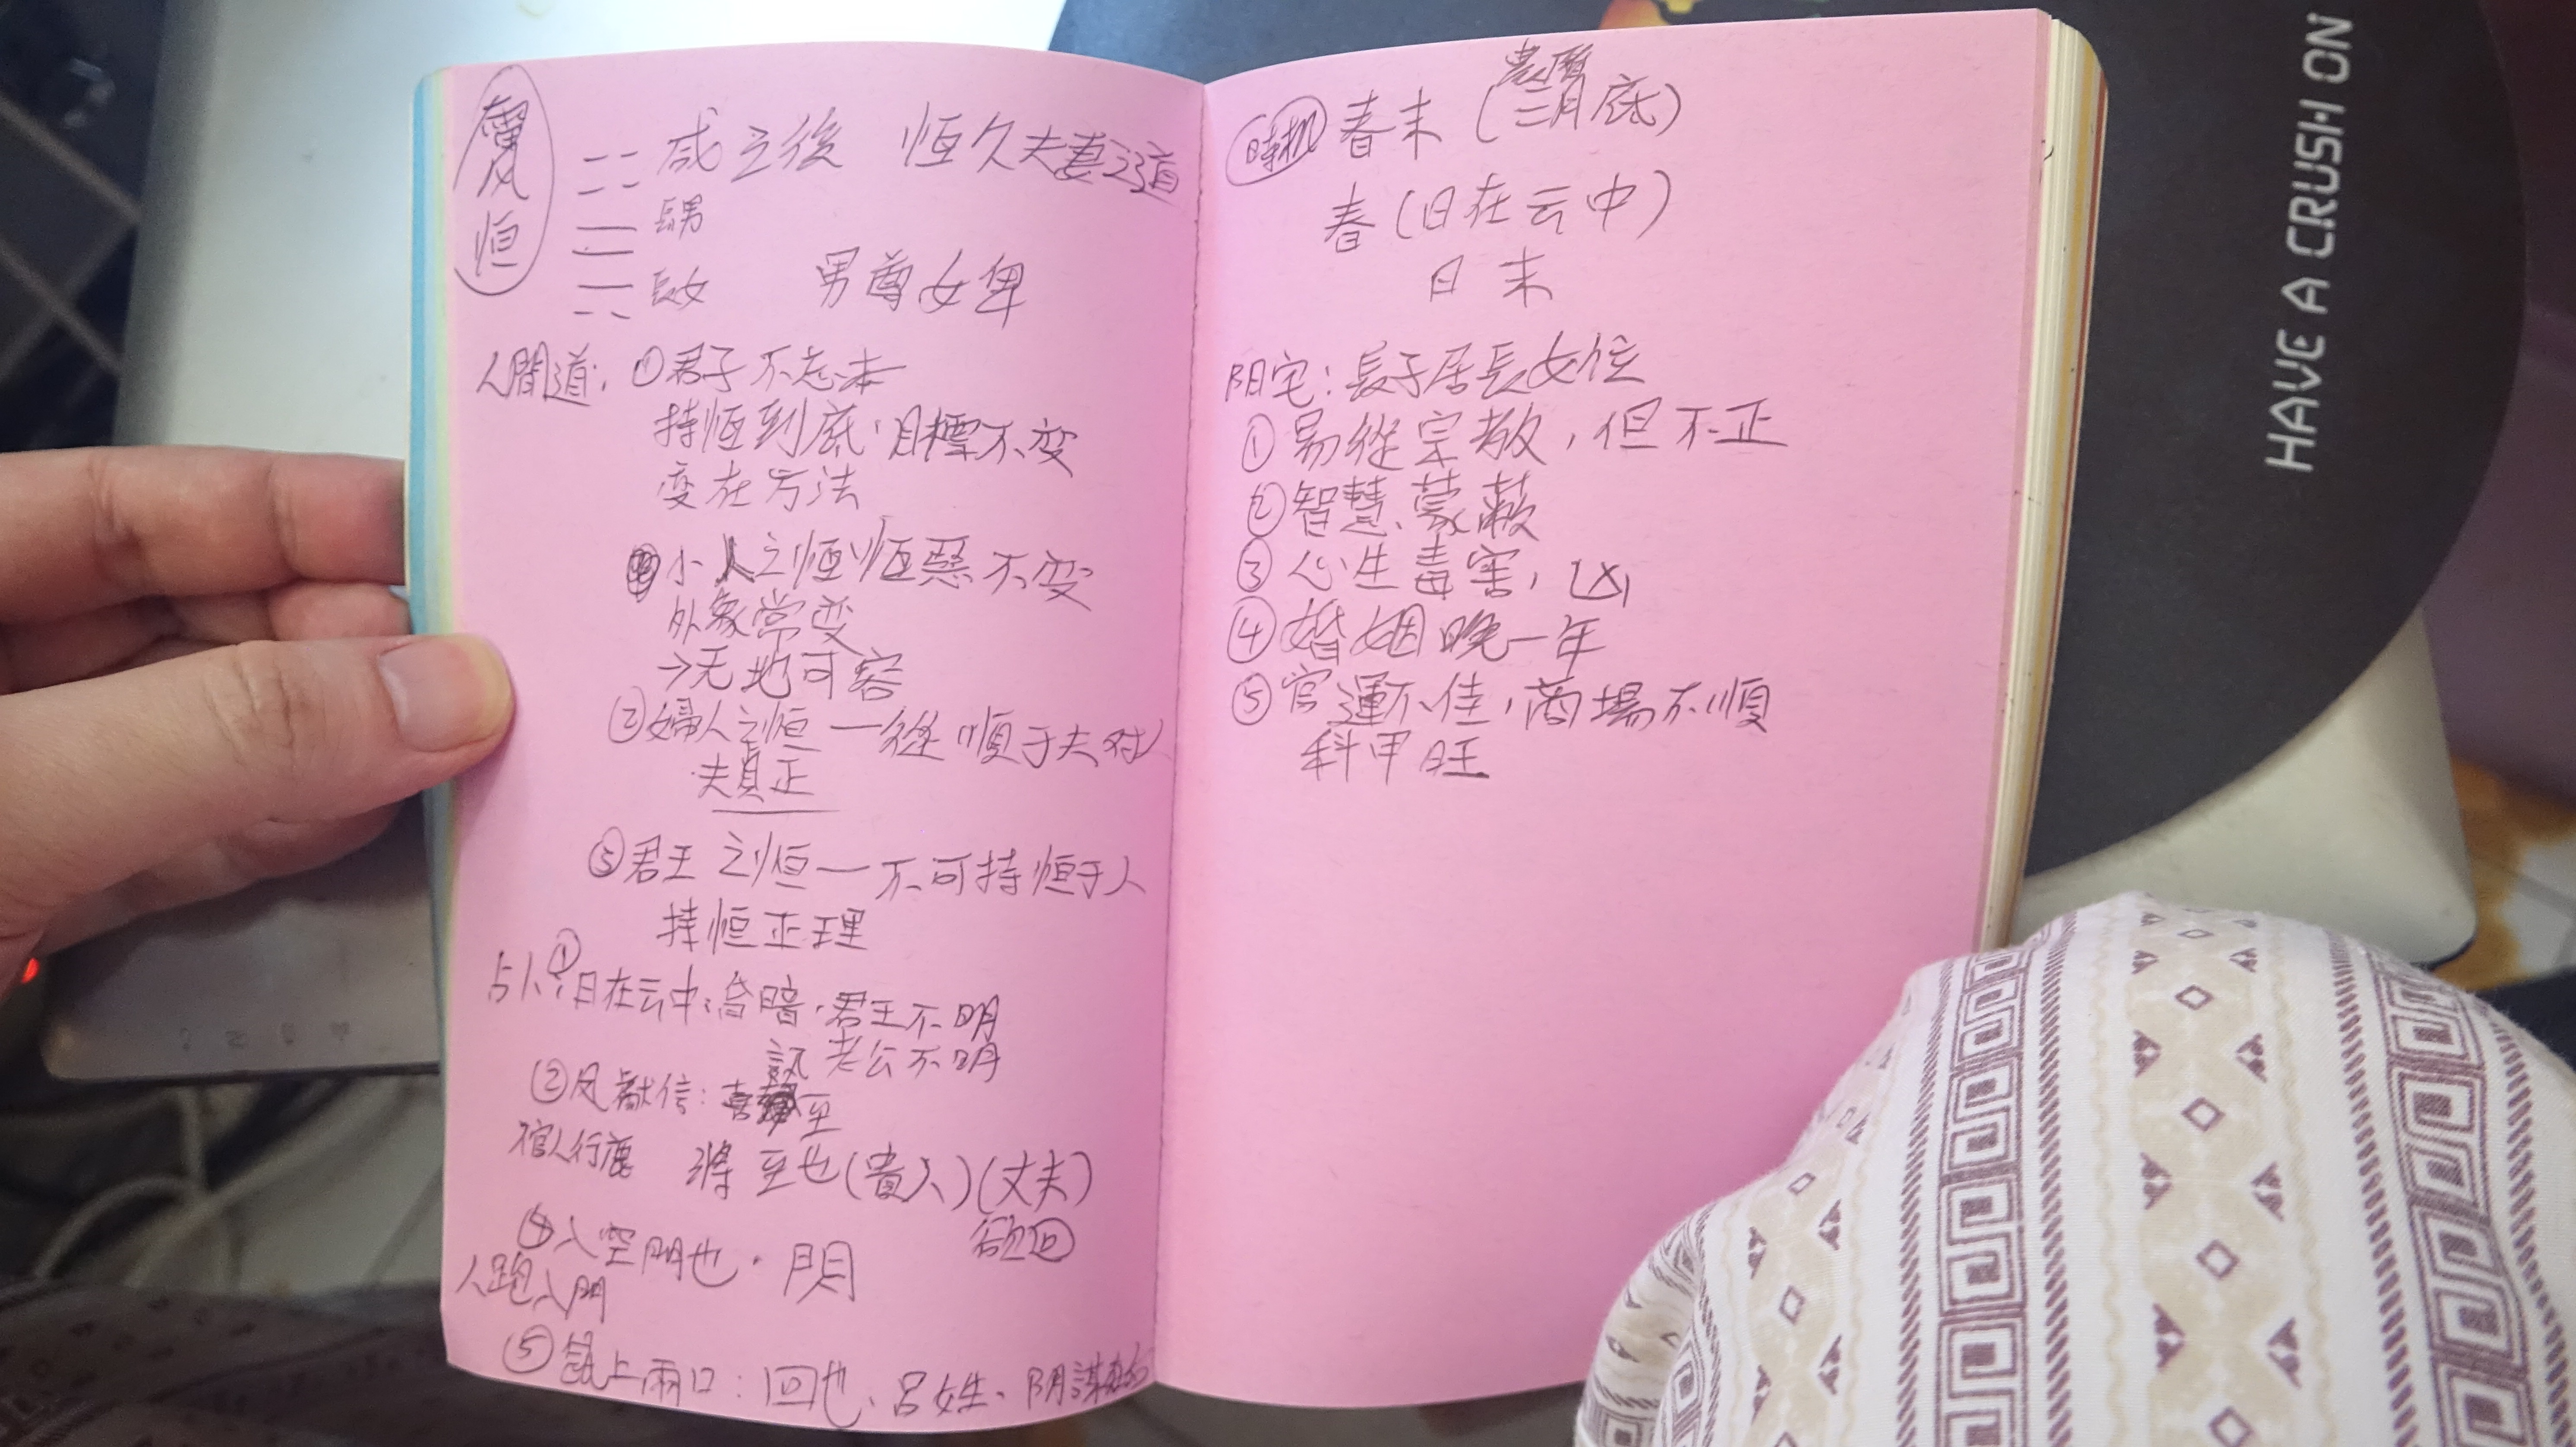 雷風
恒
咸之後 恆久夫妻之道
長男
長女 男尊女卑
人間道: ①君子不忘本
持恆到底,目標不变
变在方法
小人之恒 恒惡不变
外象常变
→无地可容
②婦人之恒 一從順于夫 对
夫貞正
③君王之恒—不可持恒于人
持恒正理
占卜:①日在云中:昏暗,君王不明
老公不明
②凤獻信:喜訊至
官人行 將至也(貴人)(丈夫)
欲回
④入空門也.
人跑入門
⑤ 上兩口:回也、呂姓、阴謀
時机 春末(三月底)
農曆
春(日在云中)
日末
阳宅:長子居長女位
①易從宗教,但不正
②智慧蒙蔽
③心生毒害,凶
④婚姻晚一年
⑤官運不佳,商場不順
科甲旺
HAVE A CRUSH ON